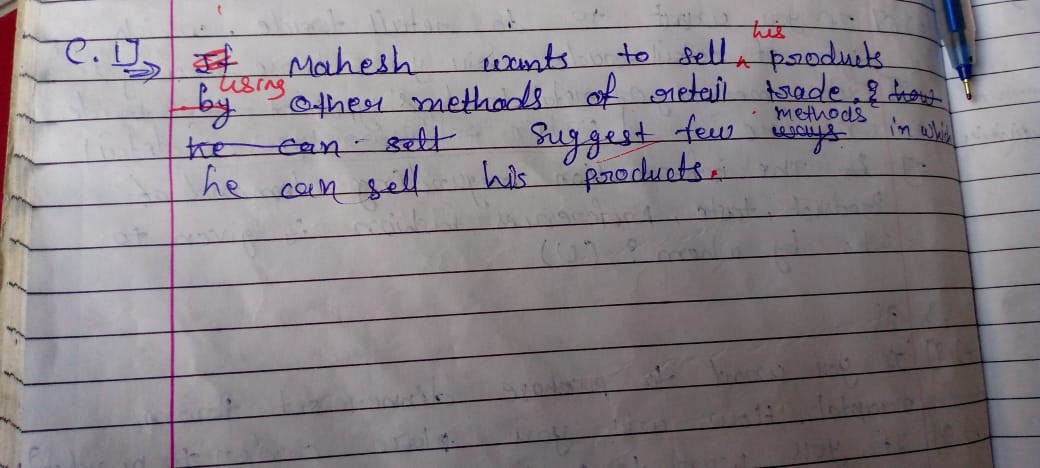 C.U If Mahesh wants to sell his products
by using other methods of retail trade. & how
he can sell Suggest few ways methods in which
he can sell his products.